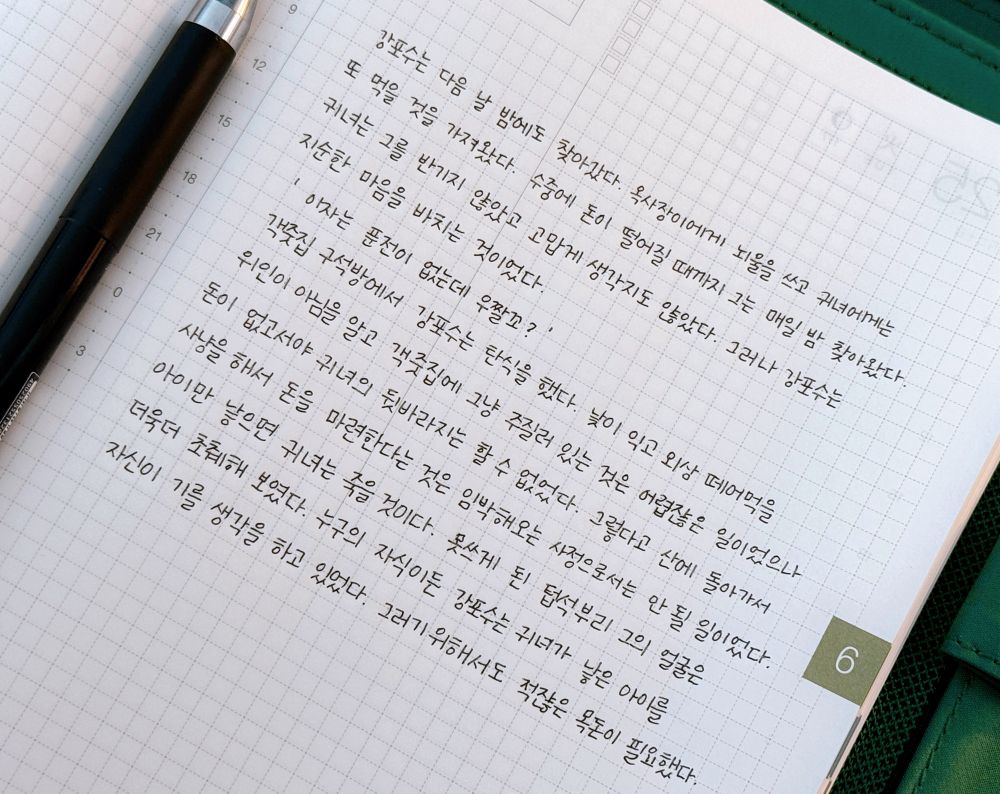 9
12
15
18
21
0
3
강포수는 다음 날 밤에도 찾아갔다. 옥사장이에게 뇌물을 쓰고 귀녀에게는
또 먹을 것을 가져왔다. 수중에 돈이 떨어질 때까지 그는 매일 밤 찾아왔다.
귀녀는 그를 반기지 않았고 고맙게 생각지도 않았다. 그러나 강포수는
지순한 마음을 바치는 것이었다.
'이자는 푼전이 없는데 우짤꼬?'
객줏집 구석방에서 강포수는 탄식을 했다. 낯이 익고 외상 떼어먹을
위인이 아님을 알고 객줏집에 그냥 주질러 있는 것은 어렵잖은 일이었으나
돈이 없고서야 귀녀의 뒷바라지는 할 수 없었다. 그렇다고 산에 돌아가서
사냥을 해서 돈을 마련한다는 것은 임박해오는 사정으로서는 안 될 일이었다.
아이만 낳으면 귀녀는 죽을 것이다. 못쓰게 된 텁석부리 그의 얼굴은
더욱더 초췌해 보였다. 누구의 자식이든 강포수는 귀녀가 낳은 아이를
자신이 기를 생각을 하고 있었다. 그러기 위해서도 적잖은 목돈이 필요했다.
6